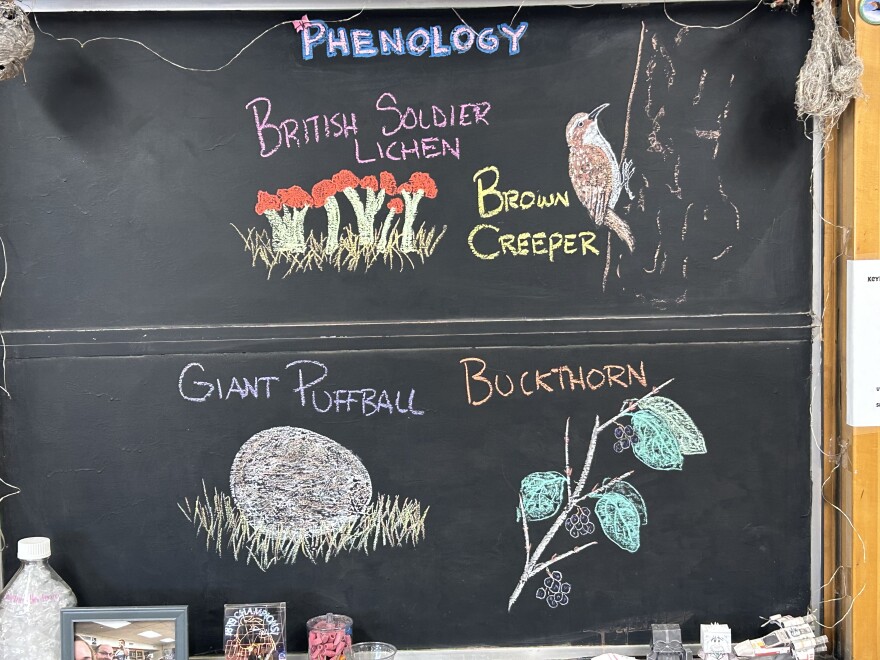 PHENOLOGY
BRITISH SOLDIER
LICHEN
BROWN
CREEPER
GIANT PUFFBALL
BUCKTHORN
CHAMPIONS!